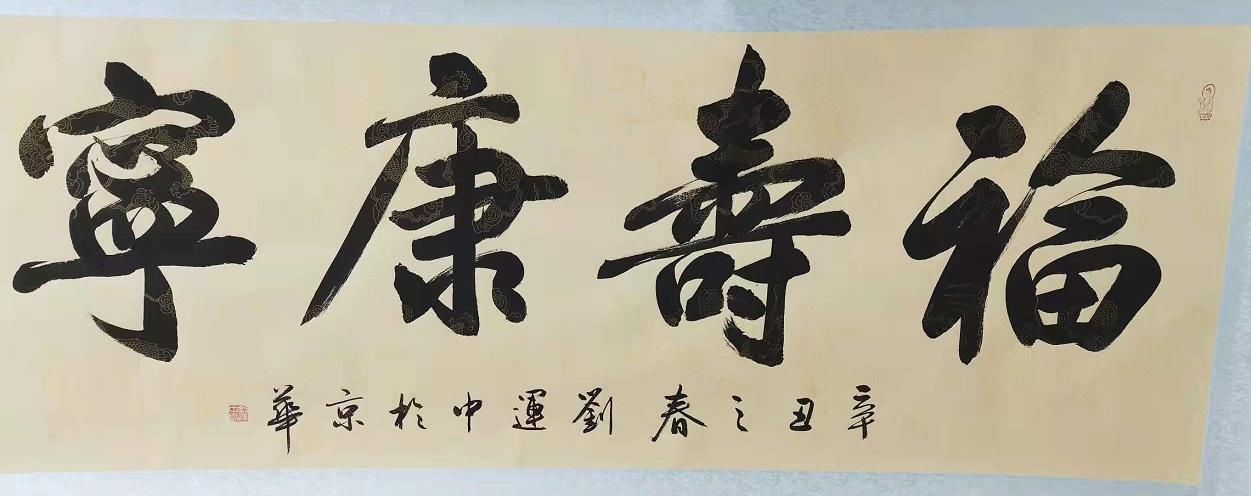 福壽康寧
辛丑之春劉運中於京華